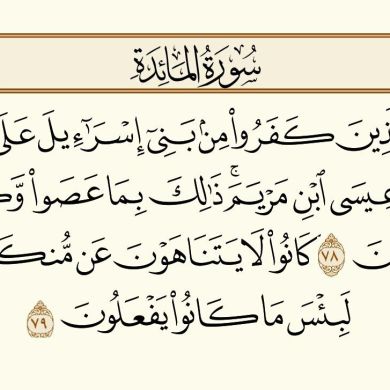 سُورَةُ المَائِدَةِ
ذِينَ كَفَرُوا۟ مِنۢ بَنِىٓ إِسْرَٰٓءِيلَ عَلَ
عِيسَى ٱبْنِ مَرْيَمَ ۚ ذَٰلِكَ بِمَا عَصَوا۟ وَّكَ
نَ ٧٨ كَانُوا۟ لَا يَتَنَاهَوْنَ عَن مُّنكَ
لَبِئْسَ مَا كَانُوا۟ يَفْعَلُونَ ٧٩